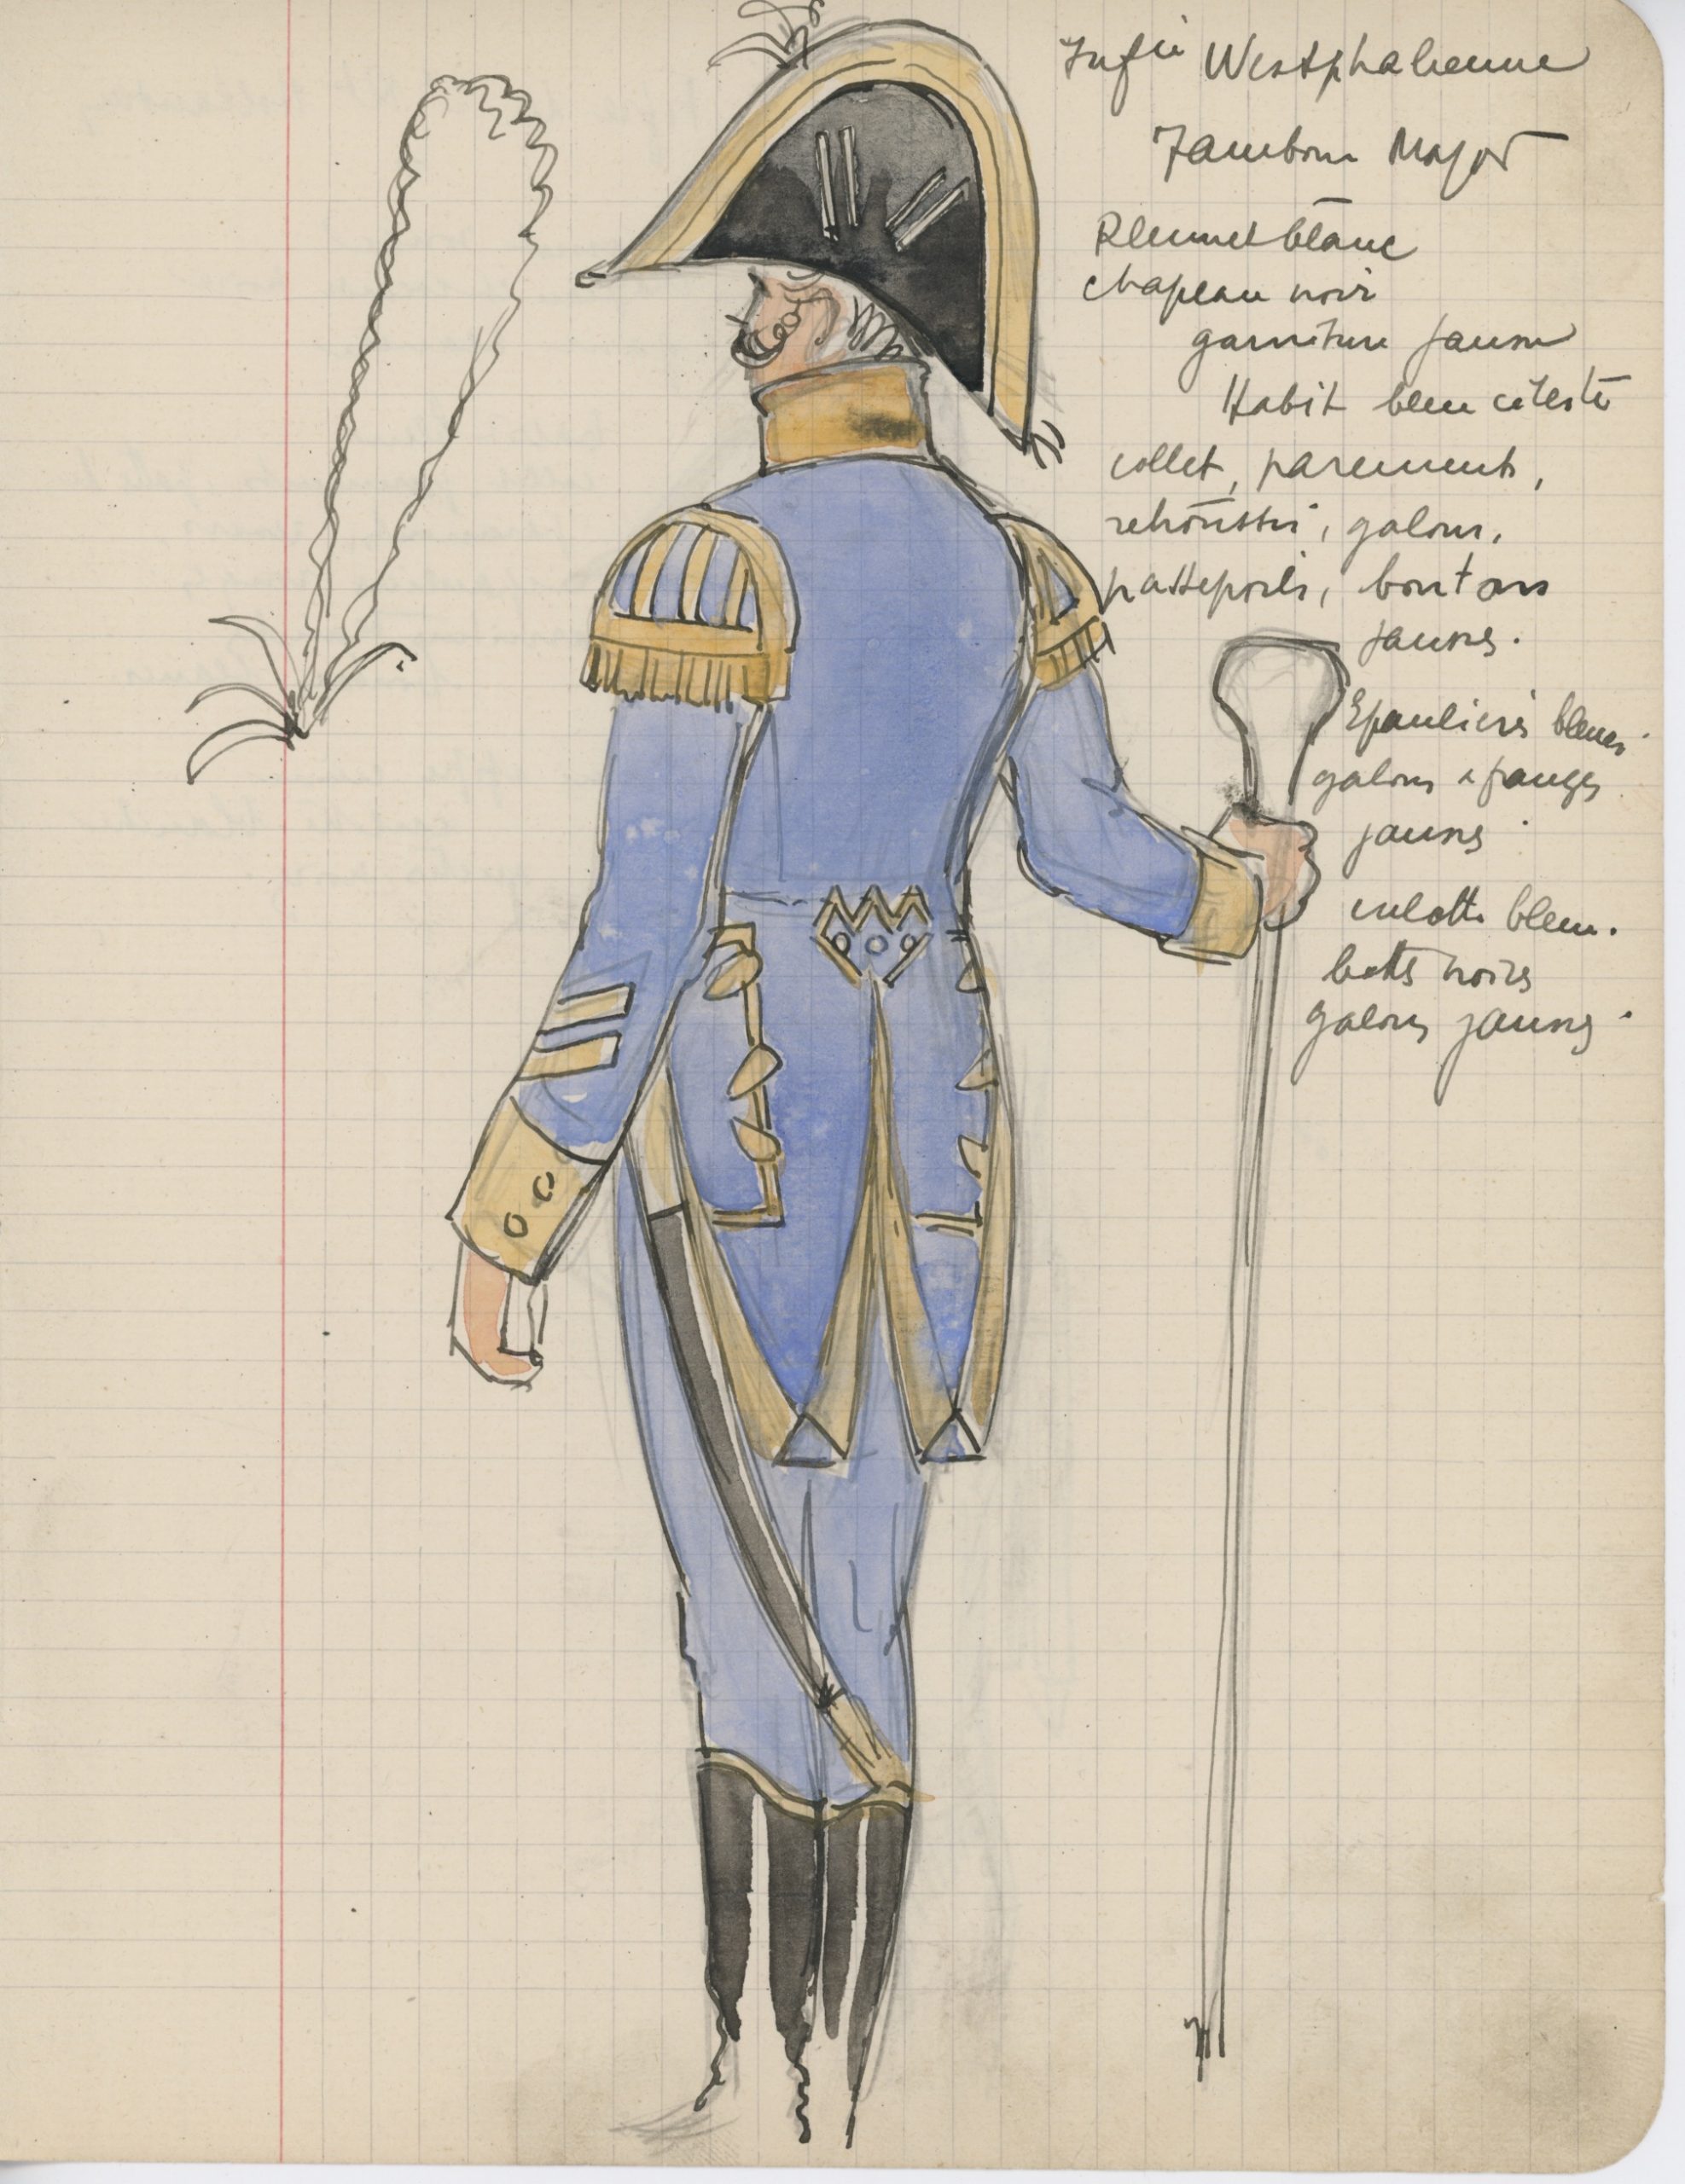 Infie Westphalienne
Tambour Major
Plumet blanc
chapeau noir
garniture jaune
Habit bleu céleste
collet, parements,
retroussis, galons,
passepoils, boutons
jaunes.
Epaulières bleues
galons & franges
jaunes
culotte bleue.
bottes noires
galons jaunes.